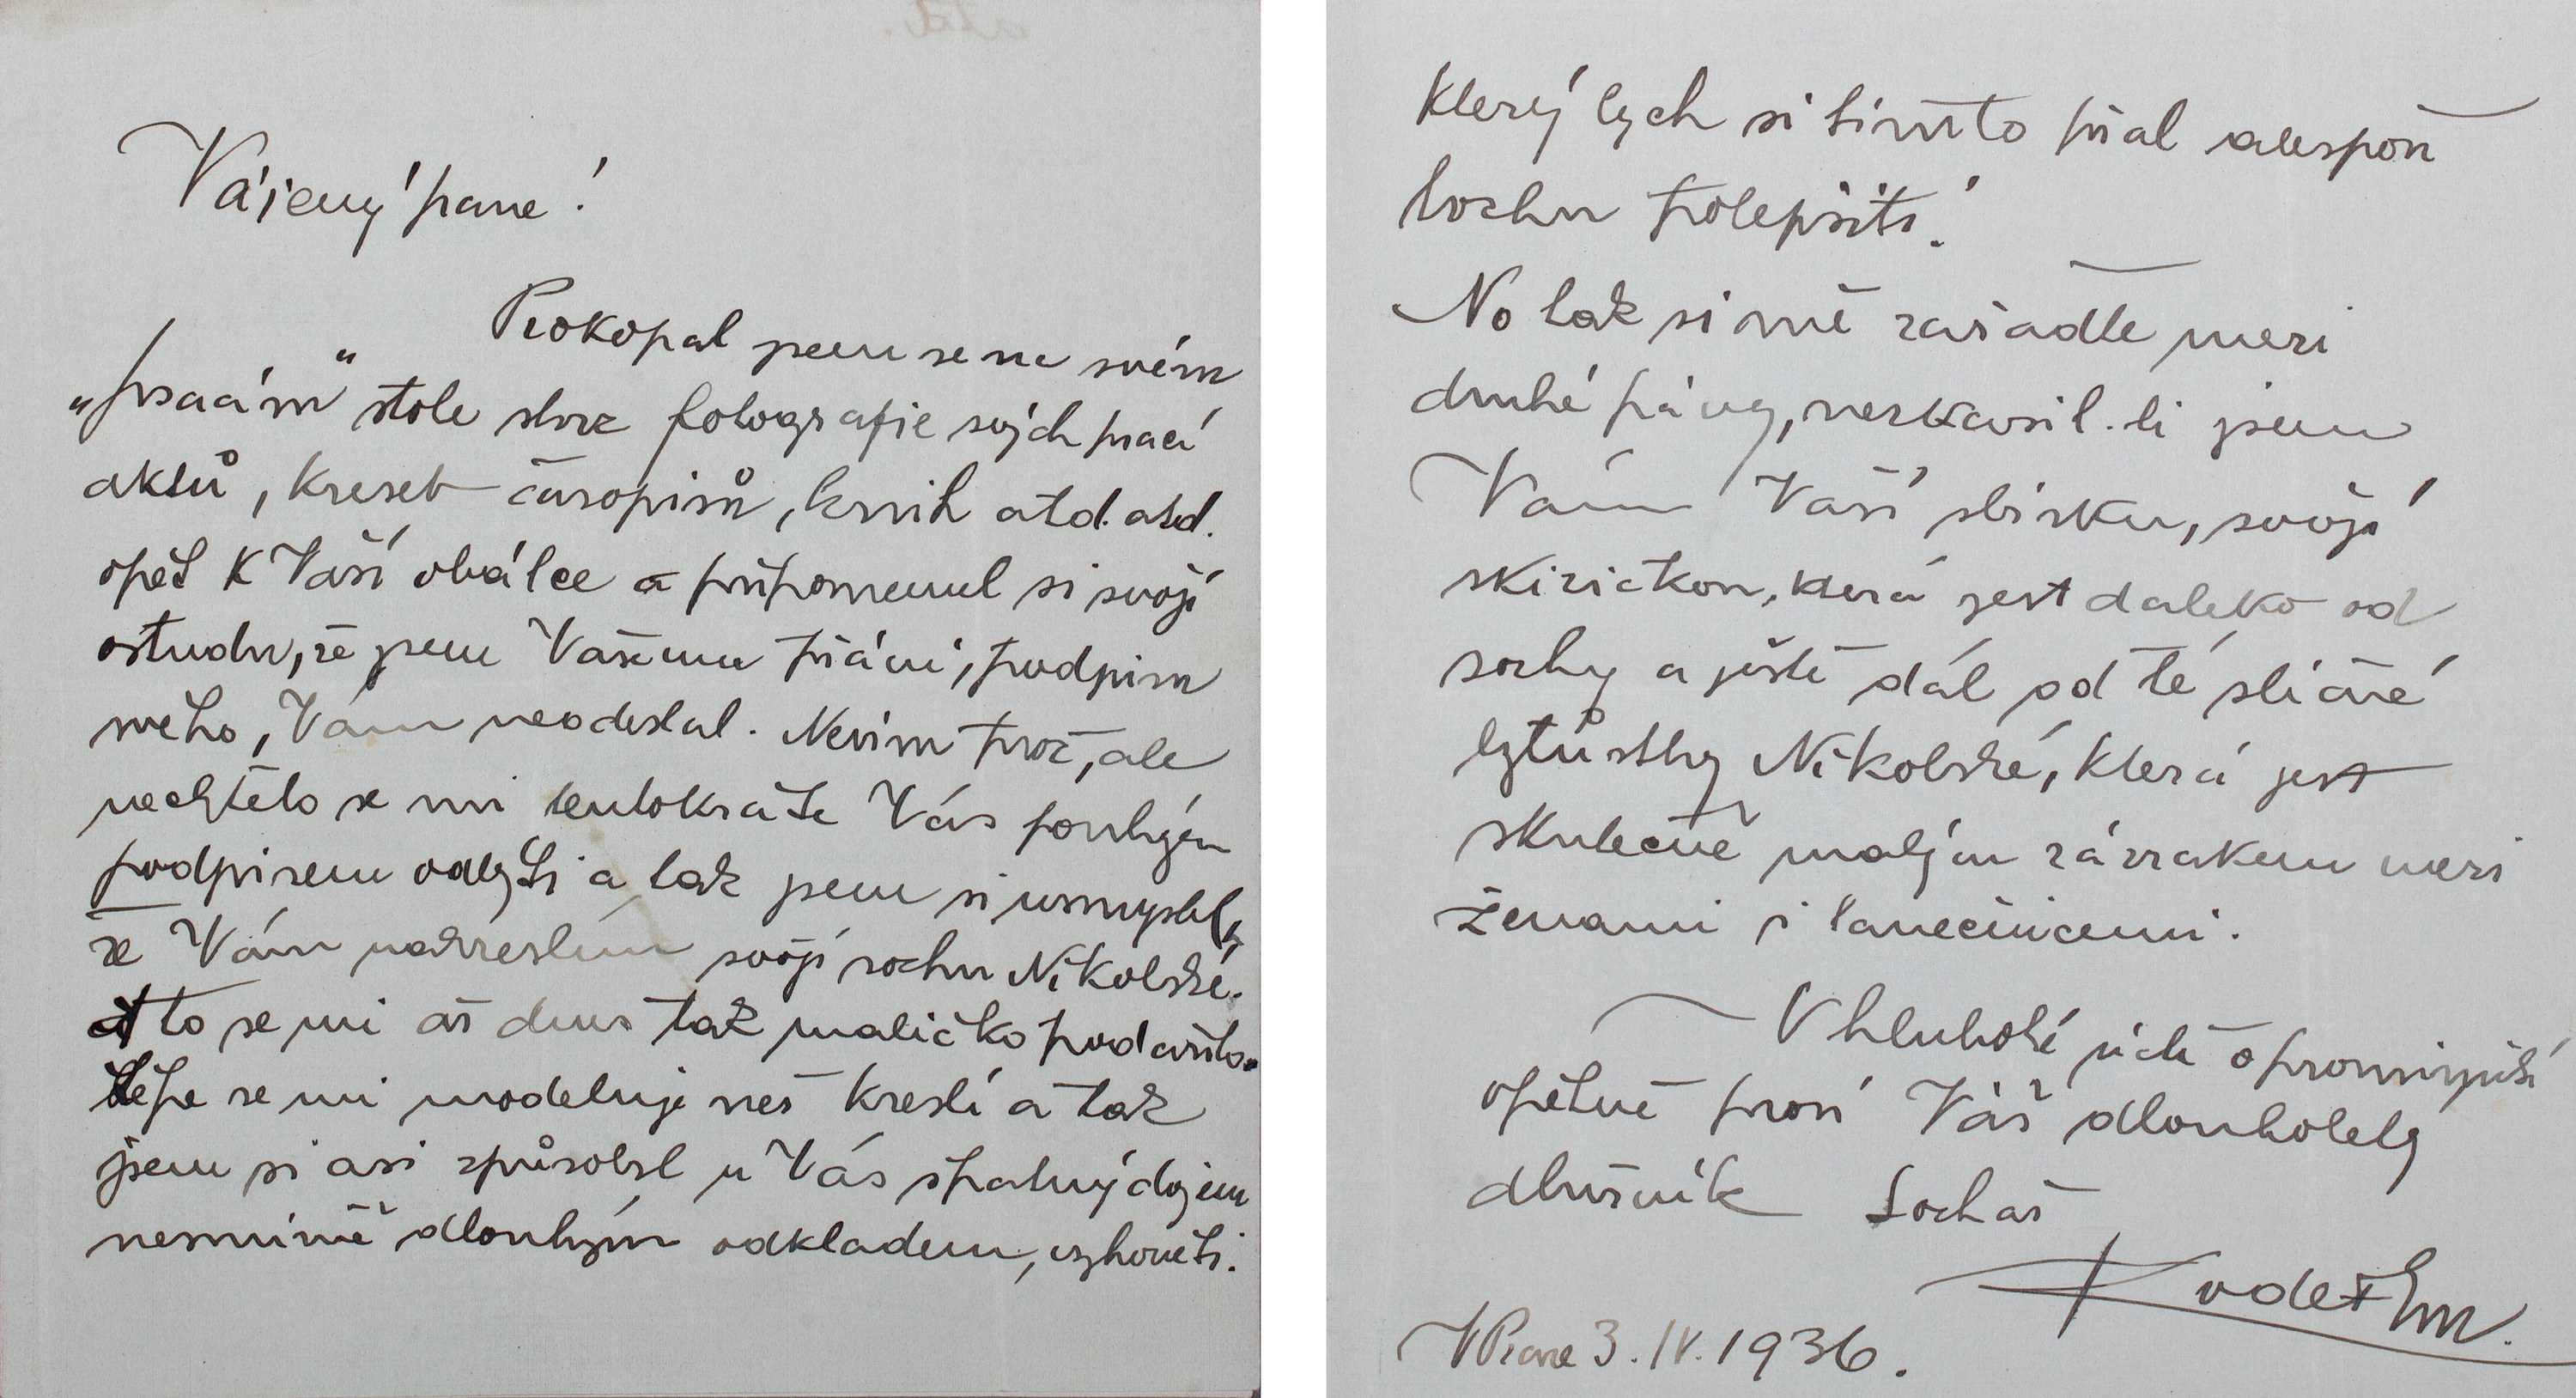 Vážený pane!
Prokopal jsem se na svém
„psacím“ stole skrz fotografie svých prací
aktů, kreseb časopisů, knih atd. atd.
opět k Vaší obálce a připomenul si svojí
ostudu, že jsem Vašemu přání, podpisu
mého, Vám neodeslal. Nevím proč, ale
nechtělo se mi tentokráte Vás pouhým
podpisem odbýti a tak jsem si usmyslil,
že Vám nakreslím svojí sochu Nikolské.
A to se mi až dnes tak maličko podařilo.
Lépe se mi modeluje než kreslí a tak
jsem si asi způsobil u Vás špatný dojem
nesmírně dlouhým odkladem, vyhověti.
který bych si tímto přál alespoň
trochu polepšiti!
No tak si mě zařaďte mezi
druhé pány, nezkazil-li jsem
Vám Vaší sbírku, svojí
skizičkou, která jest daleko od
sochy a ještě dál od té sličné
bytůstky Nikolské, která jest
skutečně malým zázrakem mezi
ženami i tanečnicemi.
V hluboké úctě o prominutí
opětně prosí Váš dlouholetý
dlužník Sochař
Kodet Em.
V Praze 3. IV. 1936.